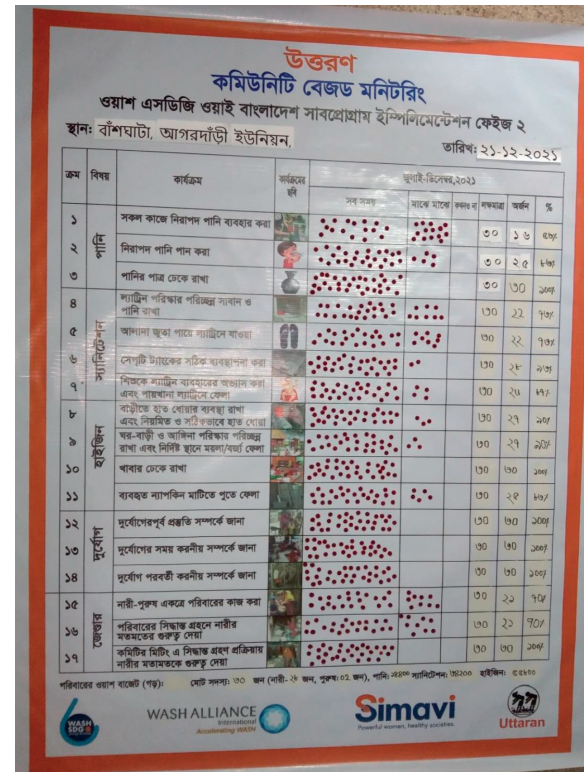 উত্তরণ
কমিউনিটি বেজড মনিটরিং
ওয়াশ এসডিজি ওয়াই বাংলাদেশ সাবপ্রোগ্রাম ইম্পিলিমেন্টেশন ফেইজ ২
স্থান: বাঁশঘাটা, আগরদাঁড়ী ইউনিয়ন,
তারিখ: ২১-১২-২০২১
ক্রম বিষয় কার্যক্রম কার্যক্রমের ছবি জুলাই-ডিসেম্বর,২০২১
সব সময় মাঝে মাঝে কখনও না লক্ষমাত্রা অর্জন %
পানি
১ সকল কাজে নিরাপদ পানি ব্যবহার করা ৩০ ১৬
২ নিরাপদ পানি পান করা ৩০ ২৫
৩ পানির পাত্র ঢেকে রাখা ৩০ ৩০ ১০০%
স্যানিটেশন
৪ ল্যাট্রিন পরিস্কার পরিচ্ছন্ন সাবান ও
পানি রাখা ৩০ ২২ ৭৩%
৫ আলাদা জুতা পায়ে ল্যাট্রিনে যাওয়া ৩০ ২২ ৭৩%
৬ সেপ্টি ট্যাংকের সঠিক ব্যবস্থাপনা করা ৩০ ২৮ ৯৩%
৭ শিশুকে ল্যাট্রিন ব্যবহারের অভ্যাস করা
এবং পায়খানা ল্যাট্রিনে ফেলা ৩০ ২৬ ৮৭%
হাইজিন
৮ বাড়ীতে হাত ধোয়ার ব্যবস্থা রাখা
এবং নিয়মিত ও সঠিকভাবে হাত ধোয়া ৩০ ২৭ ৯০%
৯ ঘর-বাড়ী ও আঙ্গিনা পরিস্কার পরিচ্ছন্ন
রাখা এবং নির্দিষ্ট স্থানে ময়লা/বর্জ্য ফেলা ৩০ ২৭
১০ খাবার ঢেকে রাখা ৩০ ৩০ ১০০%
১১ ব্যবহৃত ন্যাপকিন মাটিতে পুতে ফেলা ৩০
দুর্যোগ
১২ দুর্যোগেরপূর্ব প্রস্তুতি সম্পর্কে জানা ৩০ ৩০ ১০০%
১৩ দুর্যোগের সময় করনীয় সম্পর্কে জানা ৩০ ৩০ ১০০%
১৪ দুর্যোগ পরবর্তী করনীয় সম্পর্কে জানা ৩০ ৩০ ১০০%
জেন্ডার
১৫ নারী-পুরুষ একত্রে পরিবারের কাজ করা ৩০ ২১ ৭০%
১৬ পরিবারের সিদ্ধান্ত গ্রহনে নারীর
মতমতের গুরুত্ব দেয়া ৩০ ২১ ৭০%
১৭ কমিটির মিটিং এ সিদ্ধান্ত গ্রহণ প্রক্রিয়ায়
নারীর মতামতকে গুরুত্ব দেয়া ৩০ ৩০ ১০০%
পরিবারের ওয়াশ বাজেট (গড়): মোট সদস্য: ৩০ জন (নারী-২৮ জন, পুরুষ: ০২ জন), পানি: স্যানিটেশন: হাইজিন:
WASH
SDG
WASH ALLIANCE
International
Accelerating WASH
Simavi
Powerful women, healthy societies.
Uttaran